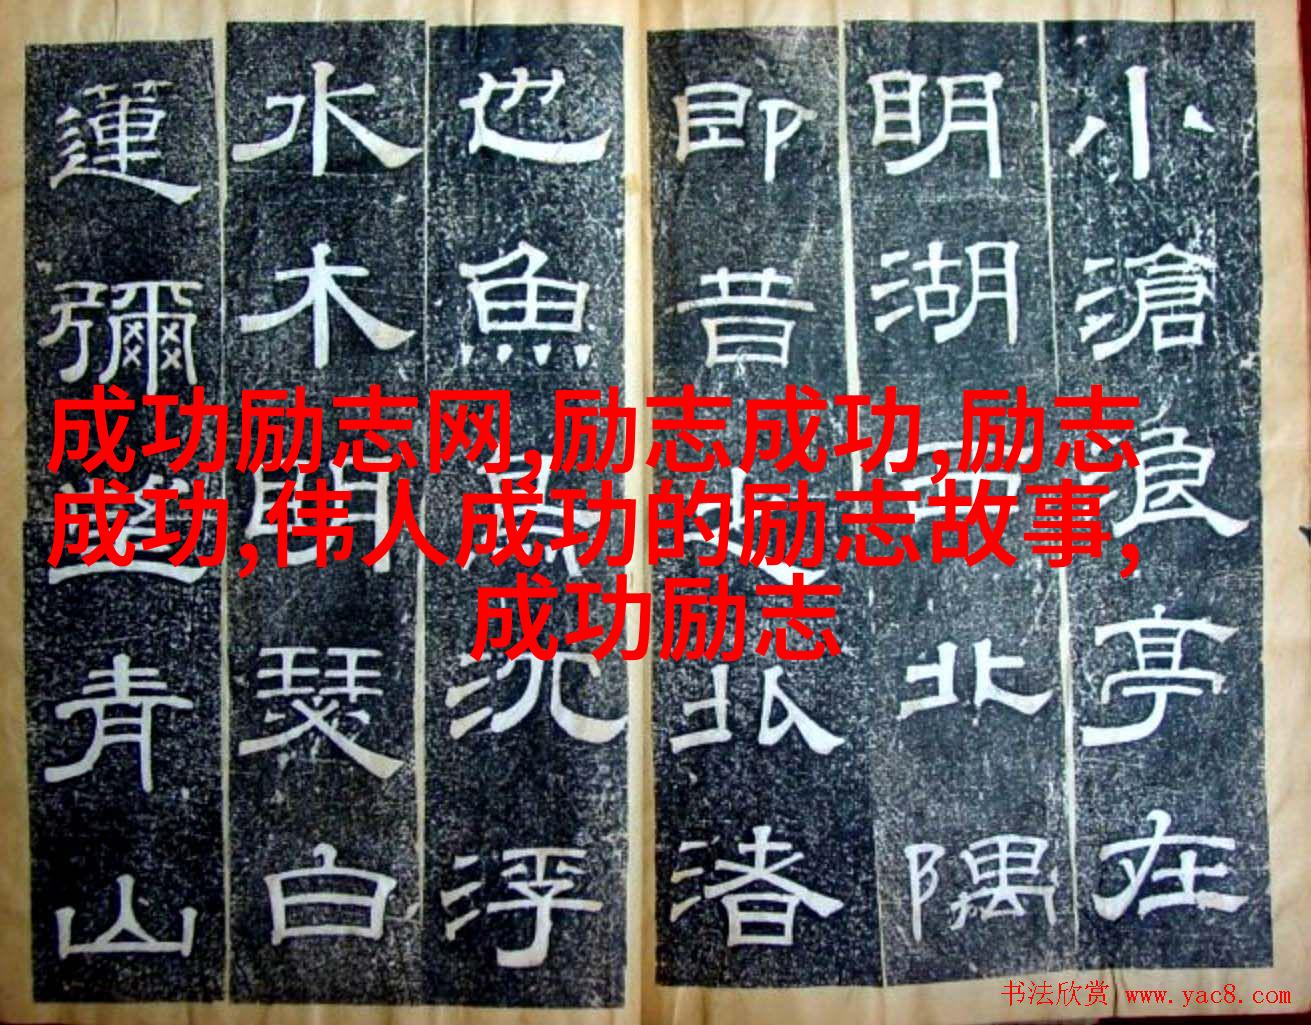 小滄浪亭在
明湖西北隅
即昔之北渚
也魚鳥沈浮
水木明瑟白
蓮彌望青山
成功励志网,励志成功,励志
成功,伟人成功的励志故事,
成功励志
书法欣赏 www.yac8.com